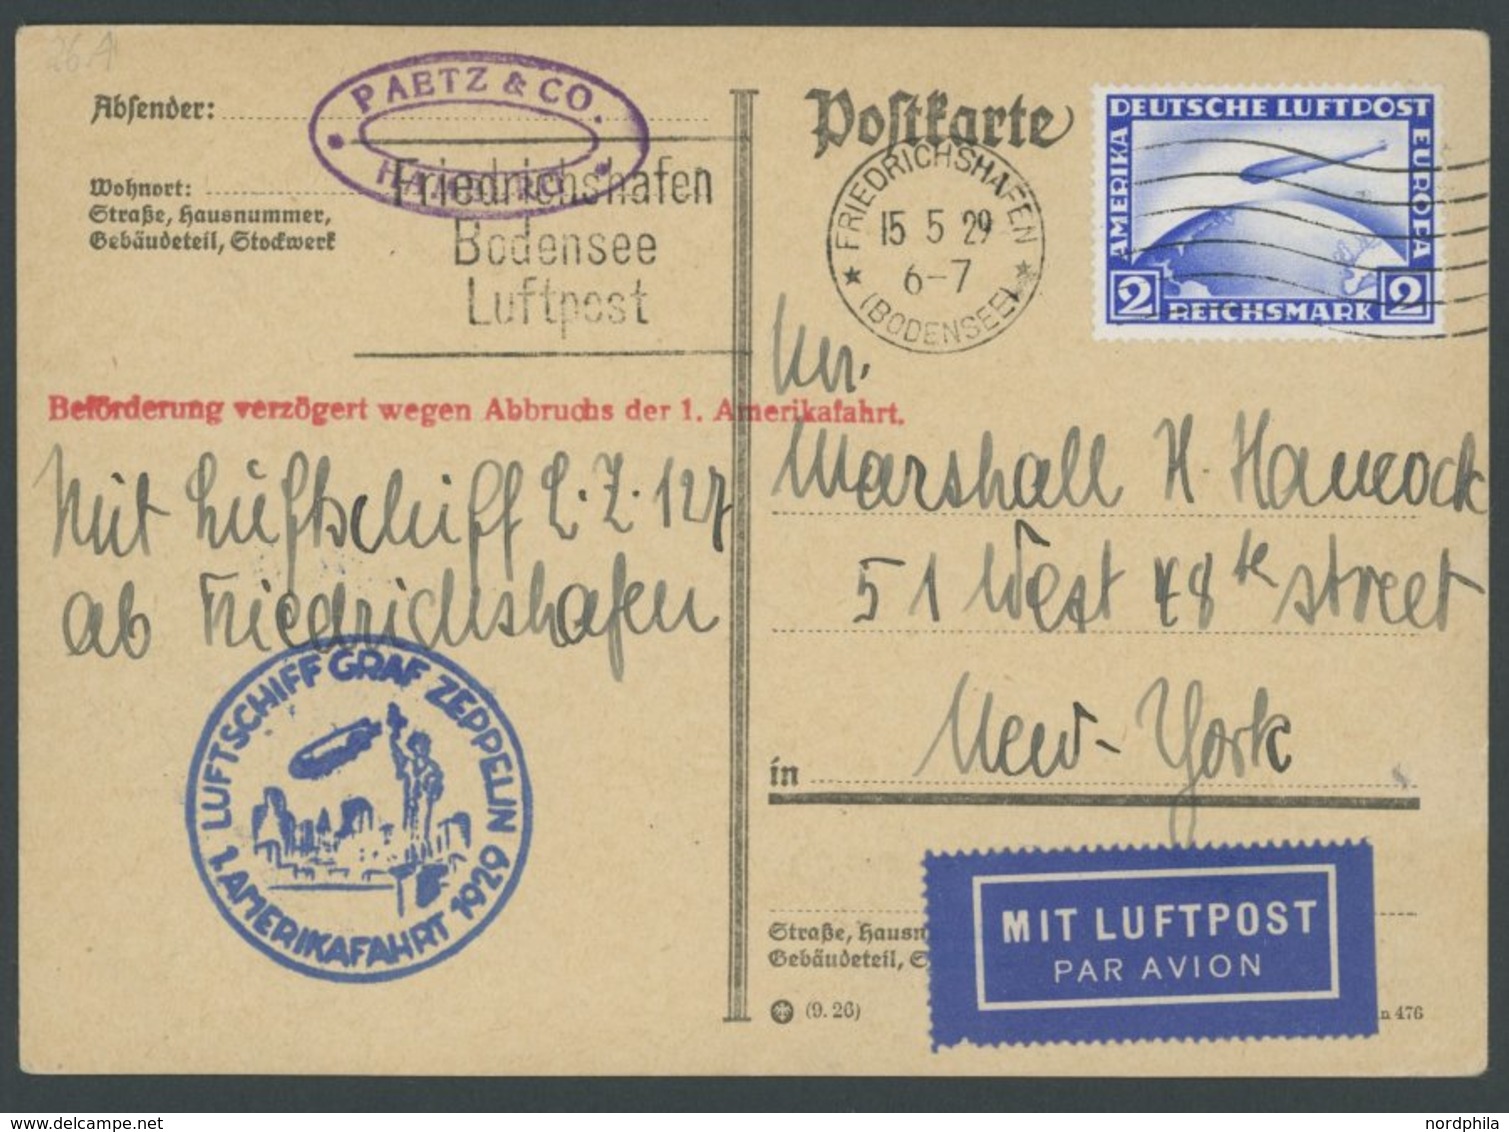 26A
Absender:
PAETZ & CO.
HAMBURG
Wohnort:
Straße, Hausnummer,
Gebäudeteil, Stockwerk
Friedrichshafen
Bodensee
Luftpost
Postkarte
FRIEDRICHSHAFEN
15 5 29
6-7
(BODENSEE)
DEUTSCHE LUFTPOST
AMERIKA
EUROPA
2 REICHSMARK 2
Beförderung verzögert wegen Abbruchs der 1. Amerikafahrt.
Mit Luftschiff L.Z. 127
ab Friedrichshafen
LUFTSCHIFF GRAF ZEPPELIN
1. AMERIKAFAHRT 1929
Marshall H. Hancock
51 West 48th street
in New-York
MIT LUFTPOST
PAR AVION
Straße, Hausn
Gebäudeteil, S
(9. 26)
n 476
nordphila